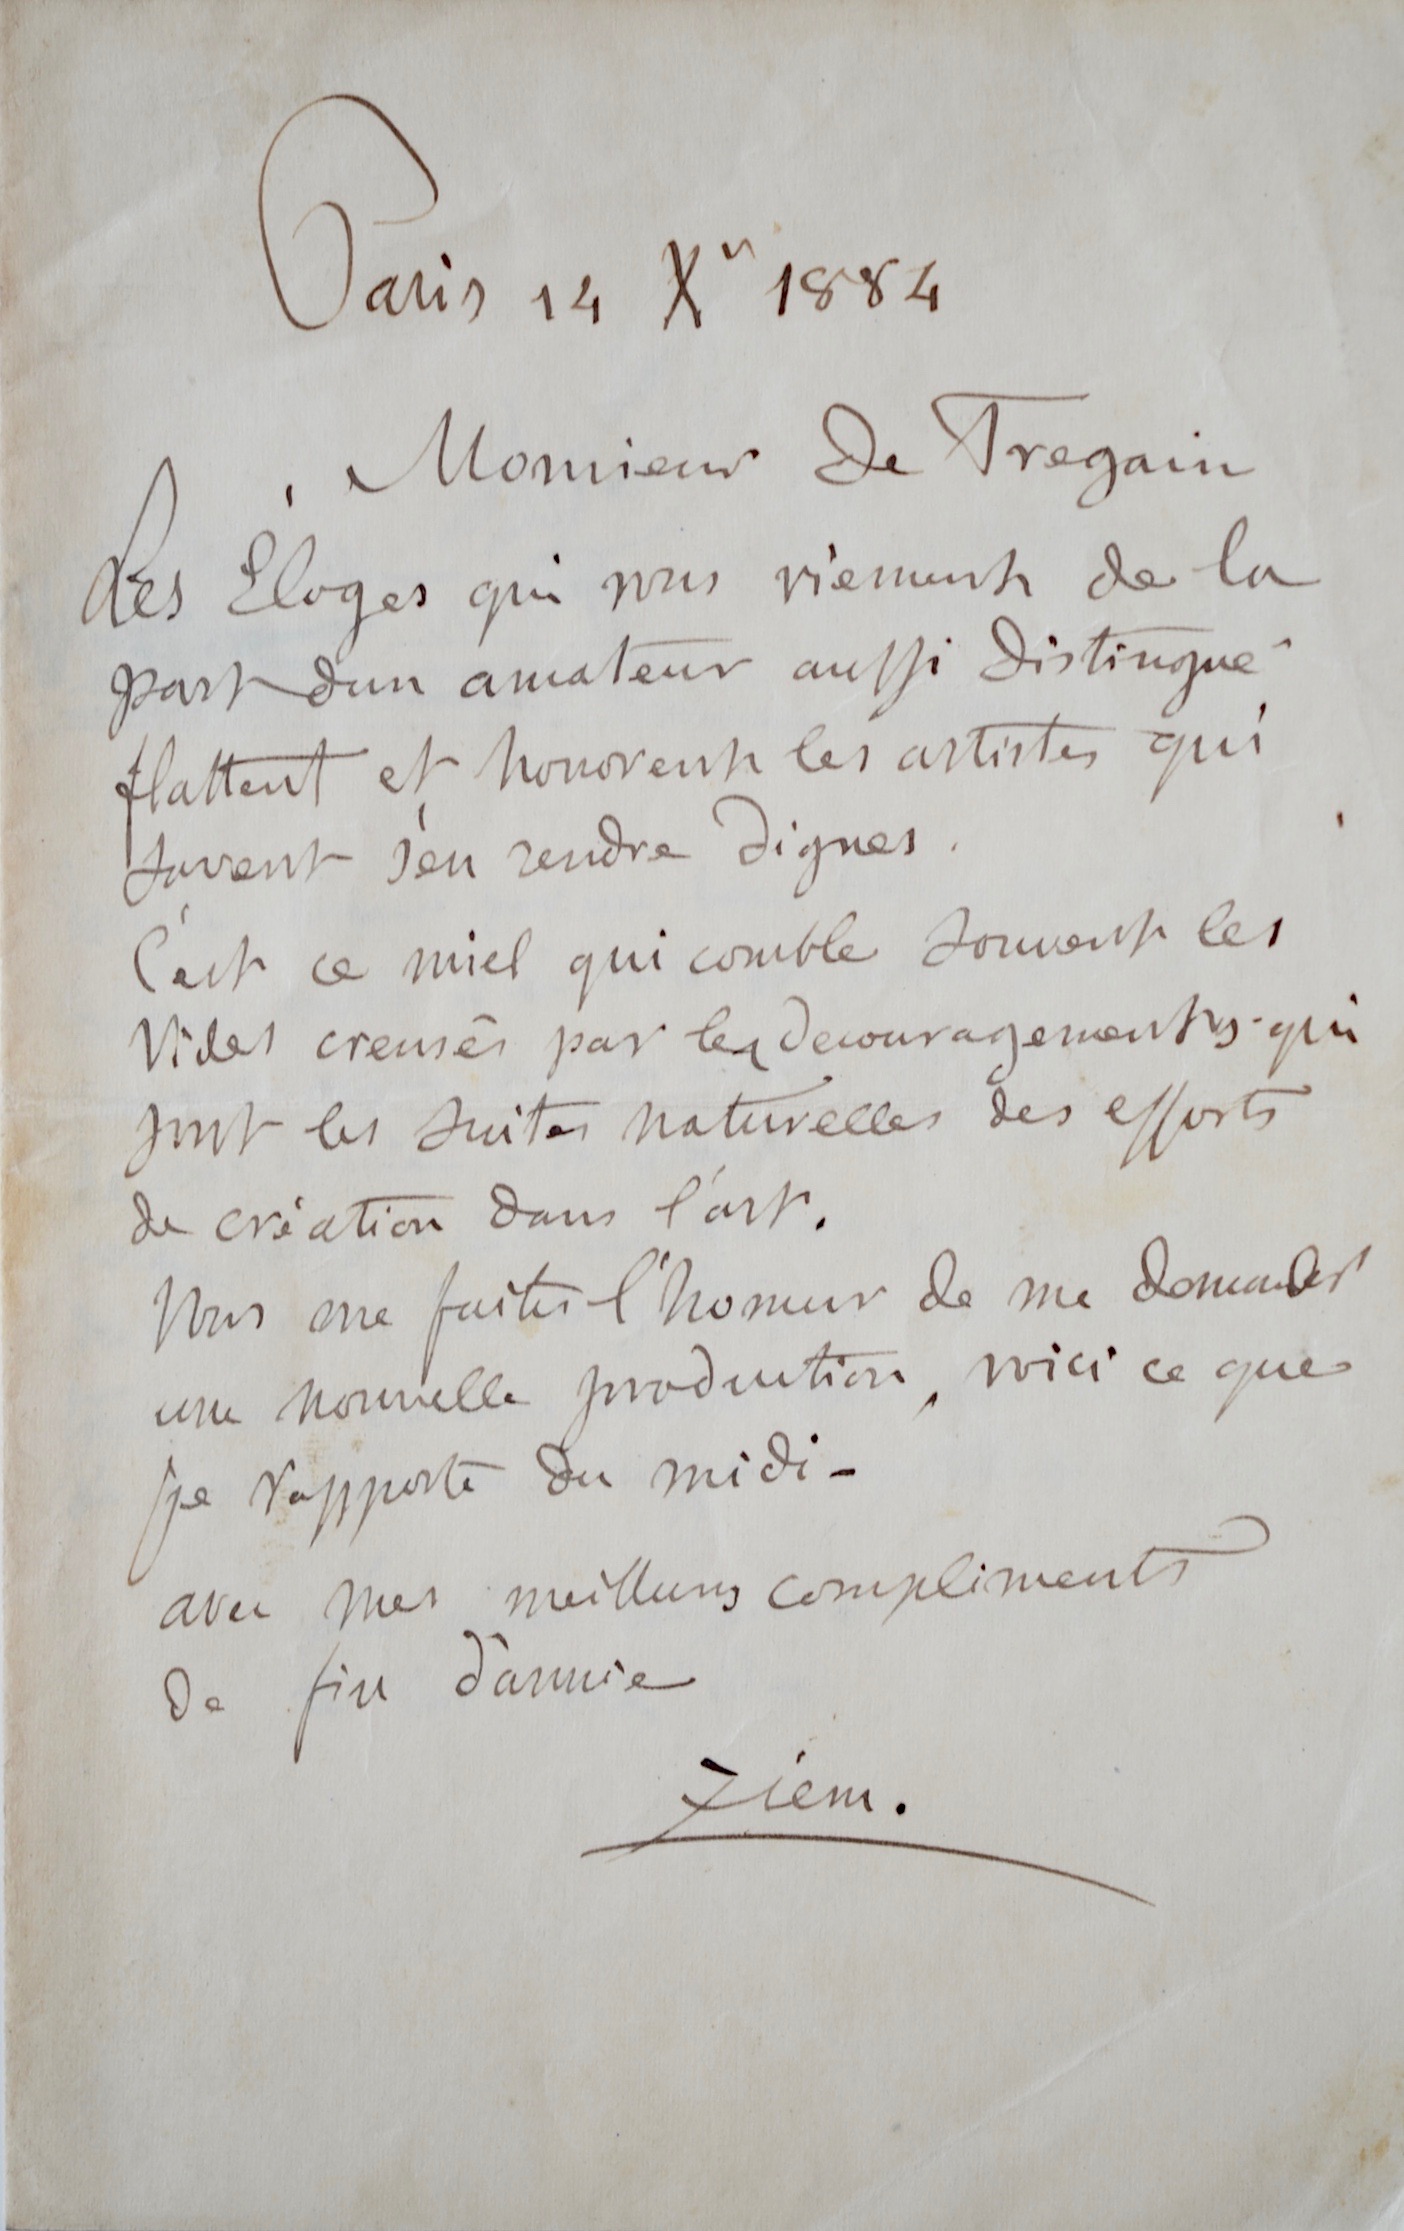 Paris 14 Xr 1884
Monsieur De Tregain
Les Éloges qui nous viennent de la
part d'un amateur aussi distingué
flattent et honorent les artistes qui
savent s'en rendre dignes.
C'est ce miel qui comble souvent les
vides creusés par les decouragements qui
sont les suites naturelles des efforts
de création dans l'art.
Vous me faites l'honneur de me demander
une nouvelle production, voici ce que
je rapporte du midi -
avec mes meilleurs compliments
de fin d'année
Ziem.